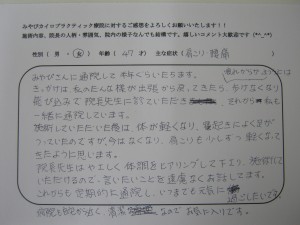 みやびカイロプラクティック療院に対するご感想をよろしくお願いいたします!!
施術内容、院長の人柄・雰囲気、院内の様子なんでも結構です。嬉しいコメント大歓迎です (*^_^*)
性別 (男・女) 年齢 (47才) 主な症状 (肩こり・腰痛)
みやびさんに通院して半年くらいたちます。
きっかけは、私のだんな様が出張から戻ってきたら、歩けなくなり
飛び込みで院長先生に診ていただき それから 私も
一緒に通院しています。
施術していただいた後は、体が軽くなり、寝起きによく足が
つっていたのですが、今はなくなり、肩こりも少しずつ軽くなって
きたように思います。
院長先生はやさしく体調をヒアリングして下さり、施術して
いただけるので、言いたいことを遠慮なくお話しできます。
これからも定期的に通院し、いつまでも元気に
過ごしたいです。
病院も自宅から近く、清潔 なので お気に入りです。